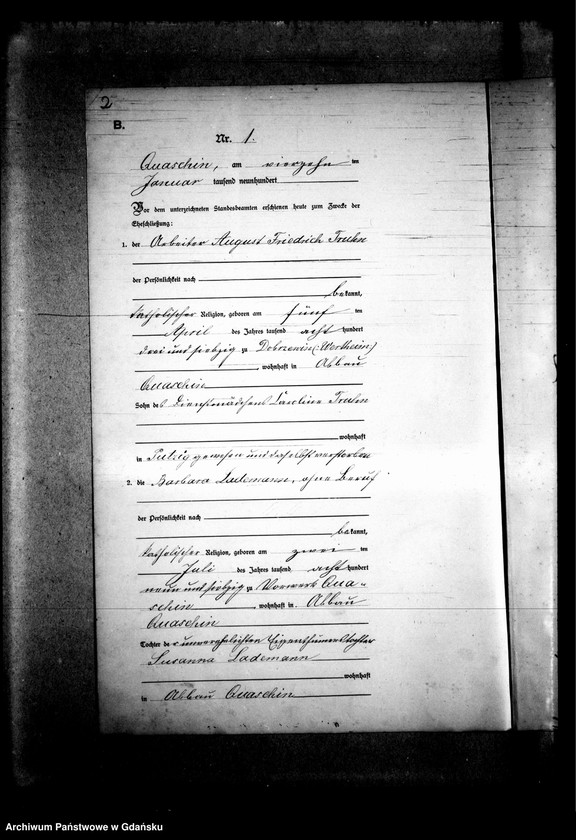 2
B.
Nr. 1.
Quaschin, am vierzehn ten
Januar tausend neunhundert
Vor dem unterzeichneten Standesbeamten erschienen heute zum Zwecke der
Eheschließung:
1. der Arbeiter August Friedrich Truhn
der Persönlichkeit nach
bekannt,
katholischer Religion, geboren am fünf ten
April des Jahres tausend acht hundert
drei und siebzig zu Dobrzewin (Wertheim)
, wohnhaft in Abbau
Quaschin
Sohn des Dienstmädchens Caroline Truhn
wohnhaft
in Putzig gewesen und daselbst verstorben
2. die Barbara Lademann, ohne Beruf
der Persönlichkeit nach
bekannt,
katholischer Religion, geboren am zwei ten
Juli des Jahres tausend acht hundert
neun und siebzig zu Vorwerk Qua-
schin, wohnhaft in Abbau
Quaschin
Tochter der unverehelichten Eigenthümertochter
Susanna Lademann
wohnhaft
in Abbau Quaschin
Archiwum Państwowe w Gdańsku